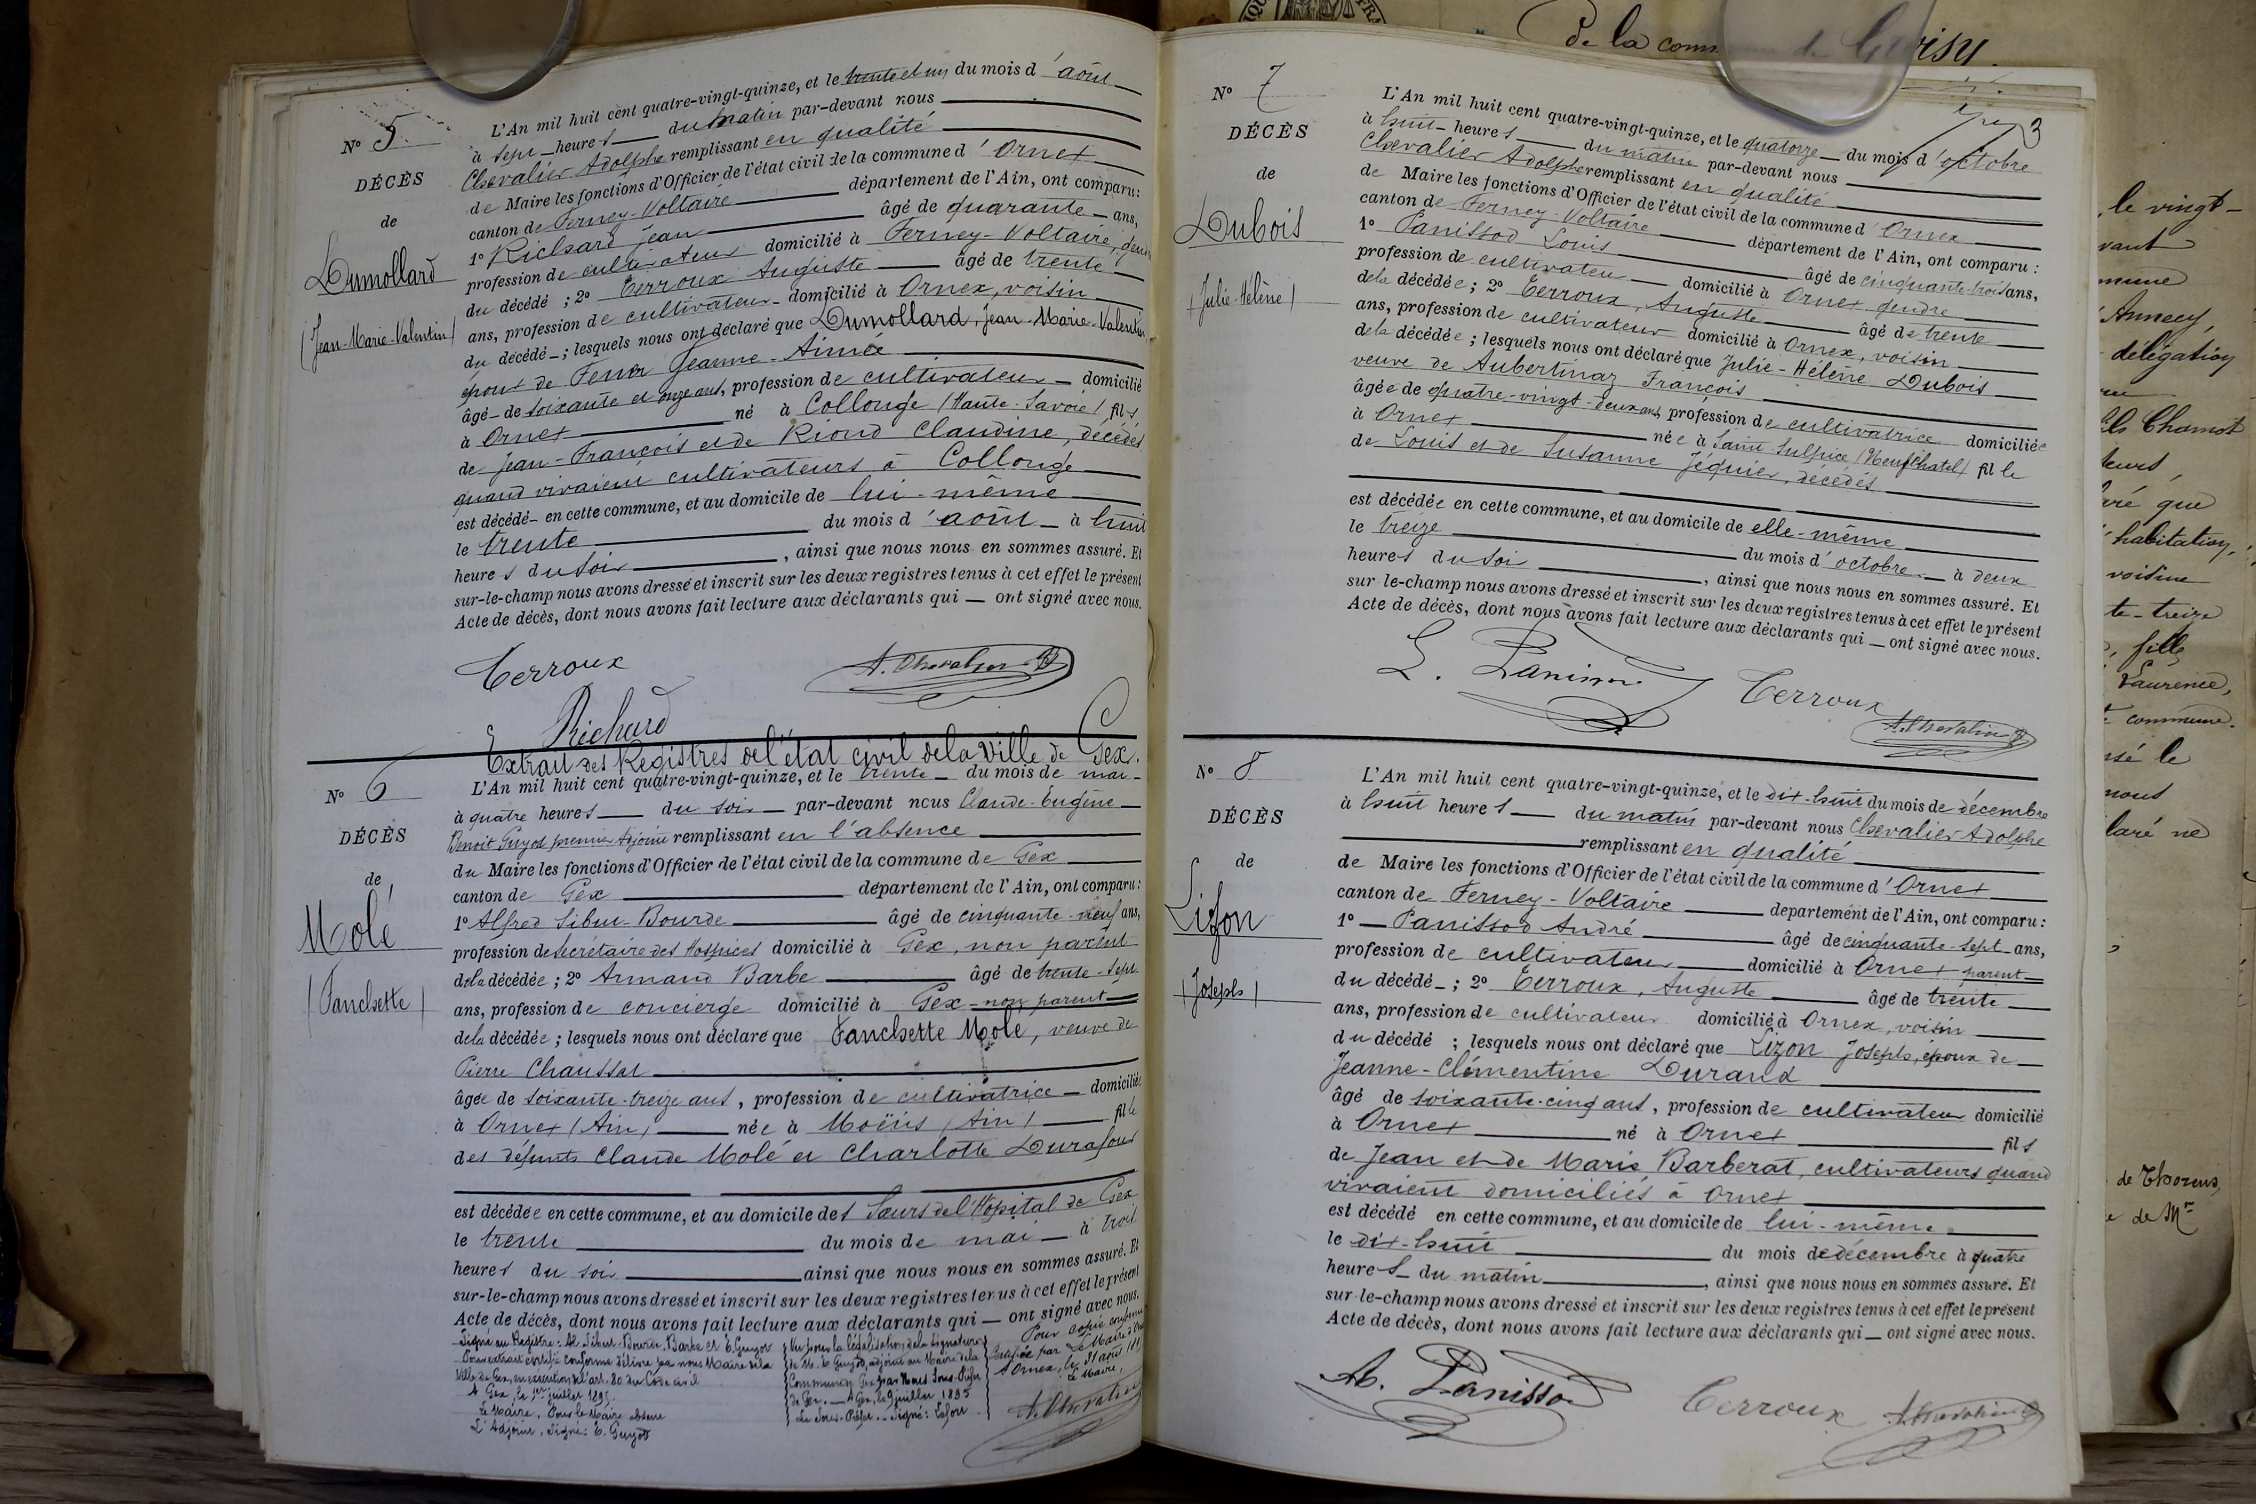 N° 5.
DÉCÈS
de
Dumollard
(Jean-Marie-Valentin)
L'An mil huit cent quatre-vingt-quinze, et le trente et un du mois d'août
à sept heures du matin par-devant nous
Chevalier Adolphe remplissant en qualité
de Maire les fonctions d'Officier de l'état civil de la commune d'Ornex
canton de Ferney-Voltaire département de l'Ain, ont comparu:
1° Richard Jean âgé de quarante ans,
profession de cultivateur domicilié à Ferney-Voltaire,
du décédé ; 2° Terroux Auguste âgé de trente
ans, profession de cultivateur domicilié à Ornex, voisin
du décédé ; lesquels nous ont déclaré que Dumollard, Jean-Marie-Valentin
époux de Jeanne-Aimée
âgé de soixante et onze ans, profession de cultivateur domicilié
à Ornex né à Collonge (Haute-Savoie) fils
de Jean-François et de Riond Claudine, décédés
quand vivaient cultivateurs à Collonge
est décédé en cette commune, et au domicile de lui-même
le trente du mois d'août à huit
heures du soir , ainsi que nous nous en sommes assuré. Et
sur-le-champ nous avons dressé et inscrit sur les deux registres tenus à cet effet le présent
Acte de décès, dont nous avons fait lecture aux déclarants qui ont signé avec nous.
Terroux A. Chevalier
Richard
Extrait des Registres de l'état civil de la Ville de Gex.
N° 6
DÉCÈS
de
Molé
(Fanchette)
L'An mil huit cent quatre-vingt-quinze, et le trente du mois de mai
à quatre heures du soir par-devant nous Claude-Eugène
Benoit Guyod premier Adjoint remplissant en l'absence
du Maire les fonctions d'Officier de l'état civil de la commune de Gex
canton de Gex département de l'Ain, ont comparu:
1° Alfred Sibut-Bourde âgé de cinquante-neuf ans,
profession de secrétaire des Hospices domicilié à Gex, non parent
de la décédée ; 2° Armand Barbe âgé de trente-sept
ans, profession de concierge domicilié à Gex non parent
de la décédée ; lesquels nous ont déclaré que Fanchette Molé, veuve de
Pierre Chaussat
âgée de soixante-treize ans, profession de cultivatrice domiciliée
à Ornex (Ain) née à Moëns (Ain) fille
des défunts Claude Molé et Charlotte Durafour
est décédée en cette commune, et au domicile des Sœurs de l'Hôpital de Gex
le trente du mois de mai à trois
heures du soir ainsi que nous nous en sommes assuré. Et
sur-le-champ nous avons dressé et inscrit sur les deux registres tenus à cet effet le présent
Acte de décès, dont nous avons fait lecture aux déclarants qui ont signé avec nous.
Signé au Registre: A. Sibut-Bourde, Barbe et E. Guyod
Pour extrait certifié conforme délivré par nous Maire de la
Ville de Gex, en exécution de l'art. 80 du Code civil
A Gex, le 1er juillet 1895.
Le Maire, Pour le Maire absent
L'Adjoint, Signé: E. Guyod
Vu pour la légalisation de la signature
de M. E. Guyod, adjoint au Maire de la
Commune de Gex par Nous Sous-Préfet
de Gex. A Gex, le 9 juillet 1895
Le Sous-Préfet. Signé:
Pour copie conforme
certifiée par Le Maire d'Ornex
A Ornex, le 31 août
Le Maire,
A. Chevalier
N° 7
3
DÉCÈS
de
Dubois
(Julie-Hélène)
L'An mil huit cent quatre-vingt-quinze, et le quatorze du mois d'octobre
à huit heures du matin par-devant nous
Chevalier Adolphe remplissant en qualité
de Maire les fonctions d'Officier de l'état civil de la commune d'Ornex
canton de Ferney-Voltaire département de l'Ain, ont comparu :
1° Panissod Louis âgé de cinquante-trois ans,
profession de cultivateur domicilié à Ornex gendre
de la décédée ; 2° Terroux, Auguste âgé de trente
ans, profession de cultivateur domicilié à Ornex, voisin
de la décédée ; lesquels nous ont déclaré que Julie-Hélène Dubois
veuve de Aubertinaz François
âgée de quatre-vingt-deux ans, profession de cultivatrice domiciliée
à Ornex née à Saint-Sulpice (Neufchatel) fille
de Louis et de Susanne Jéquier, décédés
est décédée en cette commune, et au domicile de elle-même
le treize du mois d'octobre à deux
heures du soir , ainsi que nous nous en sommes assuré. Et
sur-le-champ nous avons dressé et inscrit sur les deux registres tenus à cet effet le présent
Acte de décès, dont nous avons fait lecture aux déclarants qui ont signé avec nous.
L. Panissod Terroux A. Chevalier
N° 8
DÉCÈS
de
Lizon
(Joseph)
L'An mil huit cent quatre-vingt-quinze, et le dix-huit du mois de décembre
à huit heures du matin par-devant nous Chevalier Adolphe
remplissant en qualité
de Maire les fonctions d'Officier de l'état civil de la commune d'Ornex
canton de Ferney-Voltaire département de l'Ain, ont comparu :
1° Panissod André âgé de cinquante-sept ans,
profession de cultivateur domicilié à Ornex parent
du décédé ; 2° Terroux, Auguste âgé de trente
ans, profession de cultivateur domicilié à Ornex, voisin
du décédé ; lesquels nous ont déclaré que Lizon Joseph, époux de
Jeanne-Clémentine Durand
âgé de soixante-cinq ans, profession de cultivateur domicilié
à Ornex né à Ornex fils
de Jean et de Marie Barberat, cultivateurs quand
vivaient domiciliés à Ornex
est décédé en cette commune, et au domicile de lui-même
le dix-huit du mois de décembre à quatre
heures du matin , ainsi que nous nous en sommes assuré. Et
sur-le-champ nous avons dressé et inscrit sur les deux registres tenus à cet effet le présent
Acte de décès, dont nous avons fait lecture aux déclarants qui ont signé avec nous.
A. Panissod Terroux A. Chevalier
de la
le vingt-
Annecy,
délégation
Chamot
que
habitation,
voisine
te-treize
fille
Laurence,
commune.
le
nous
laré ne
de Thorens,
de Mr